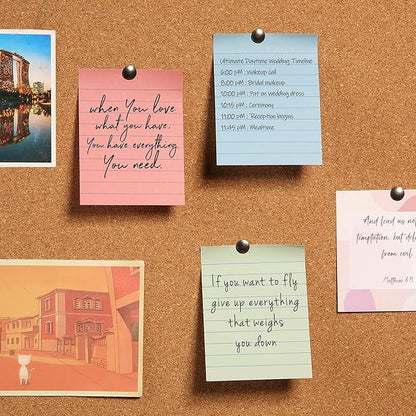 when You love
what you have.
You have everything
You need.
Ultimate Daytime Wedding Timeline
6:00 pm : Wakeup call
8:00 pm : Bridal makeup
10:00 pm : Put on wedding dress
10:15 pm : Ceremony
11:00 pm : Reception begins
11:45 pm : Mealtime
And lead us no
temptation, but del
from evil.
Matthew 6:13
If you want to fly
give up everything
that weighs
you down